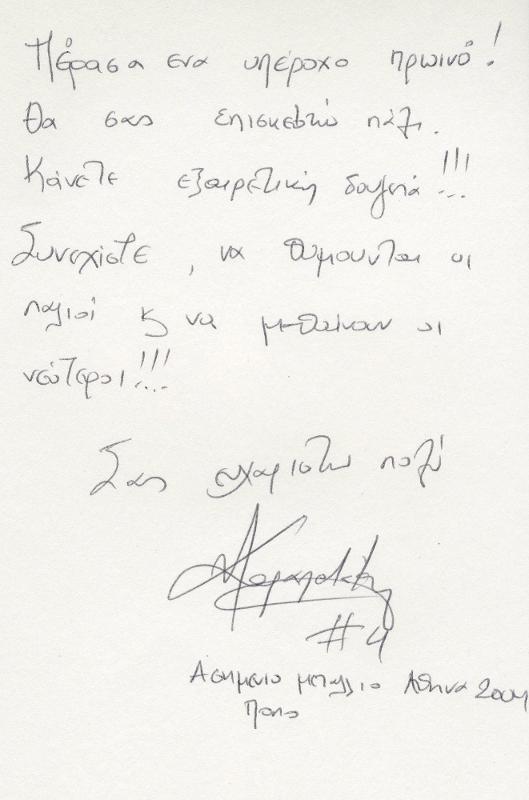 Πέρασα ενα υπέροχο πρωινό!
Θα σας επισκεφτώ πάλι.
Κάνετε εξαιρετική δουλειά!!!
Συνεχίστε, να θυμούνται οι
παλιοί κ να μαθαίνουν οι
νεότεροι!!!
Σας ευχαριστω πολύ
#4
Ασημενιο μεταλλιο Αθηνα 2004
Πολο